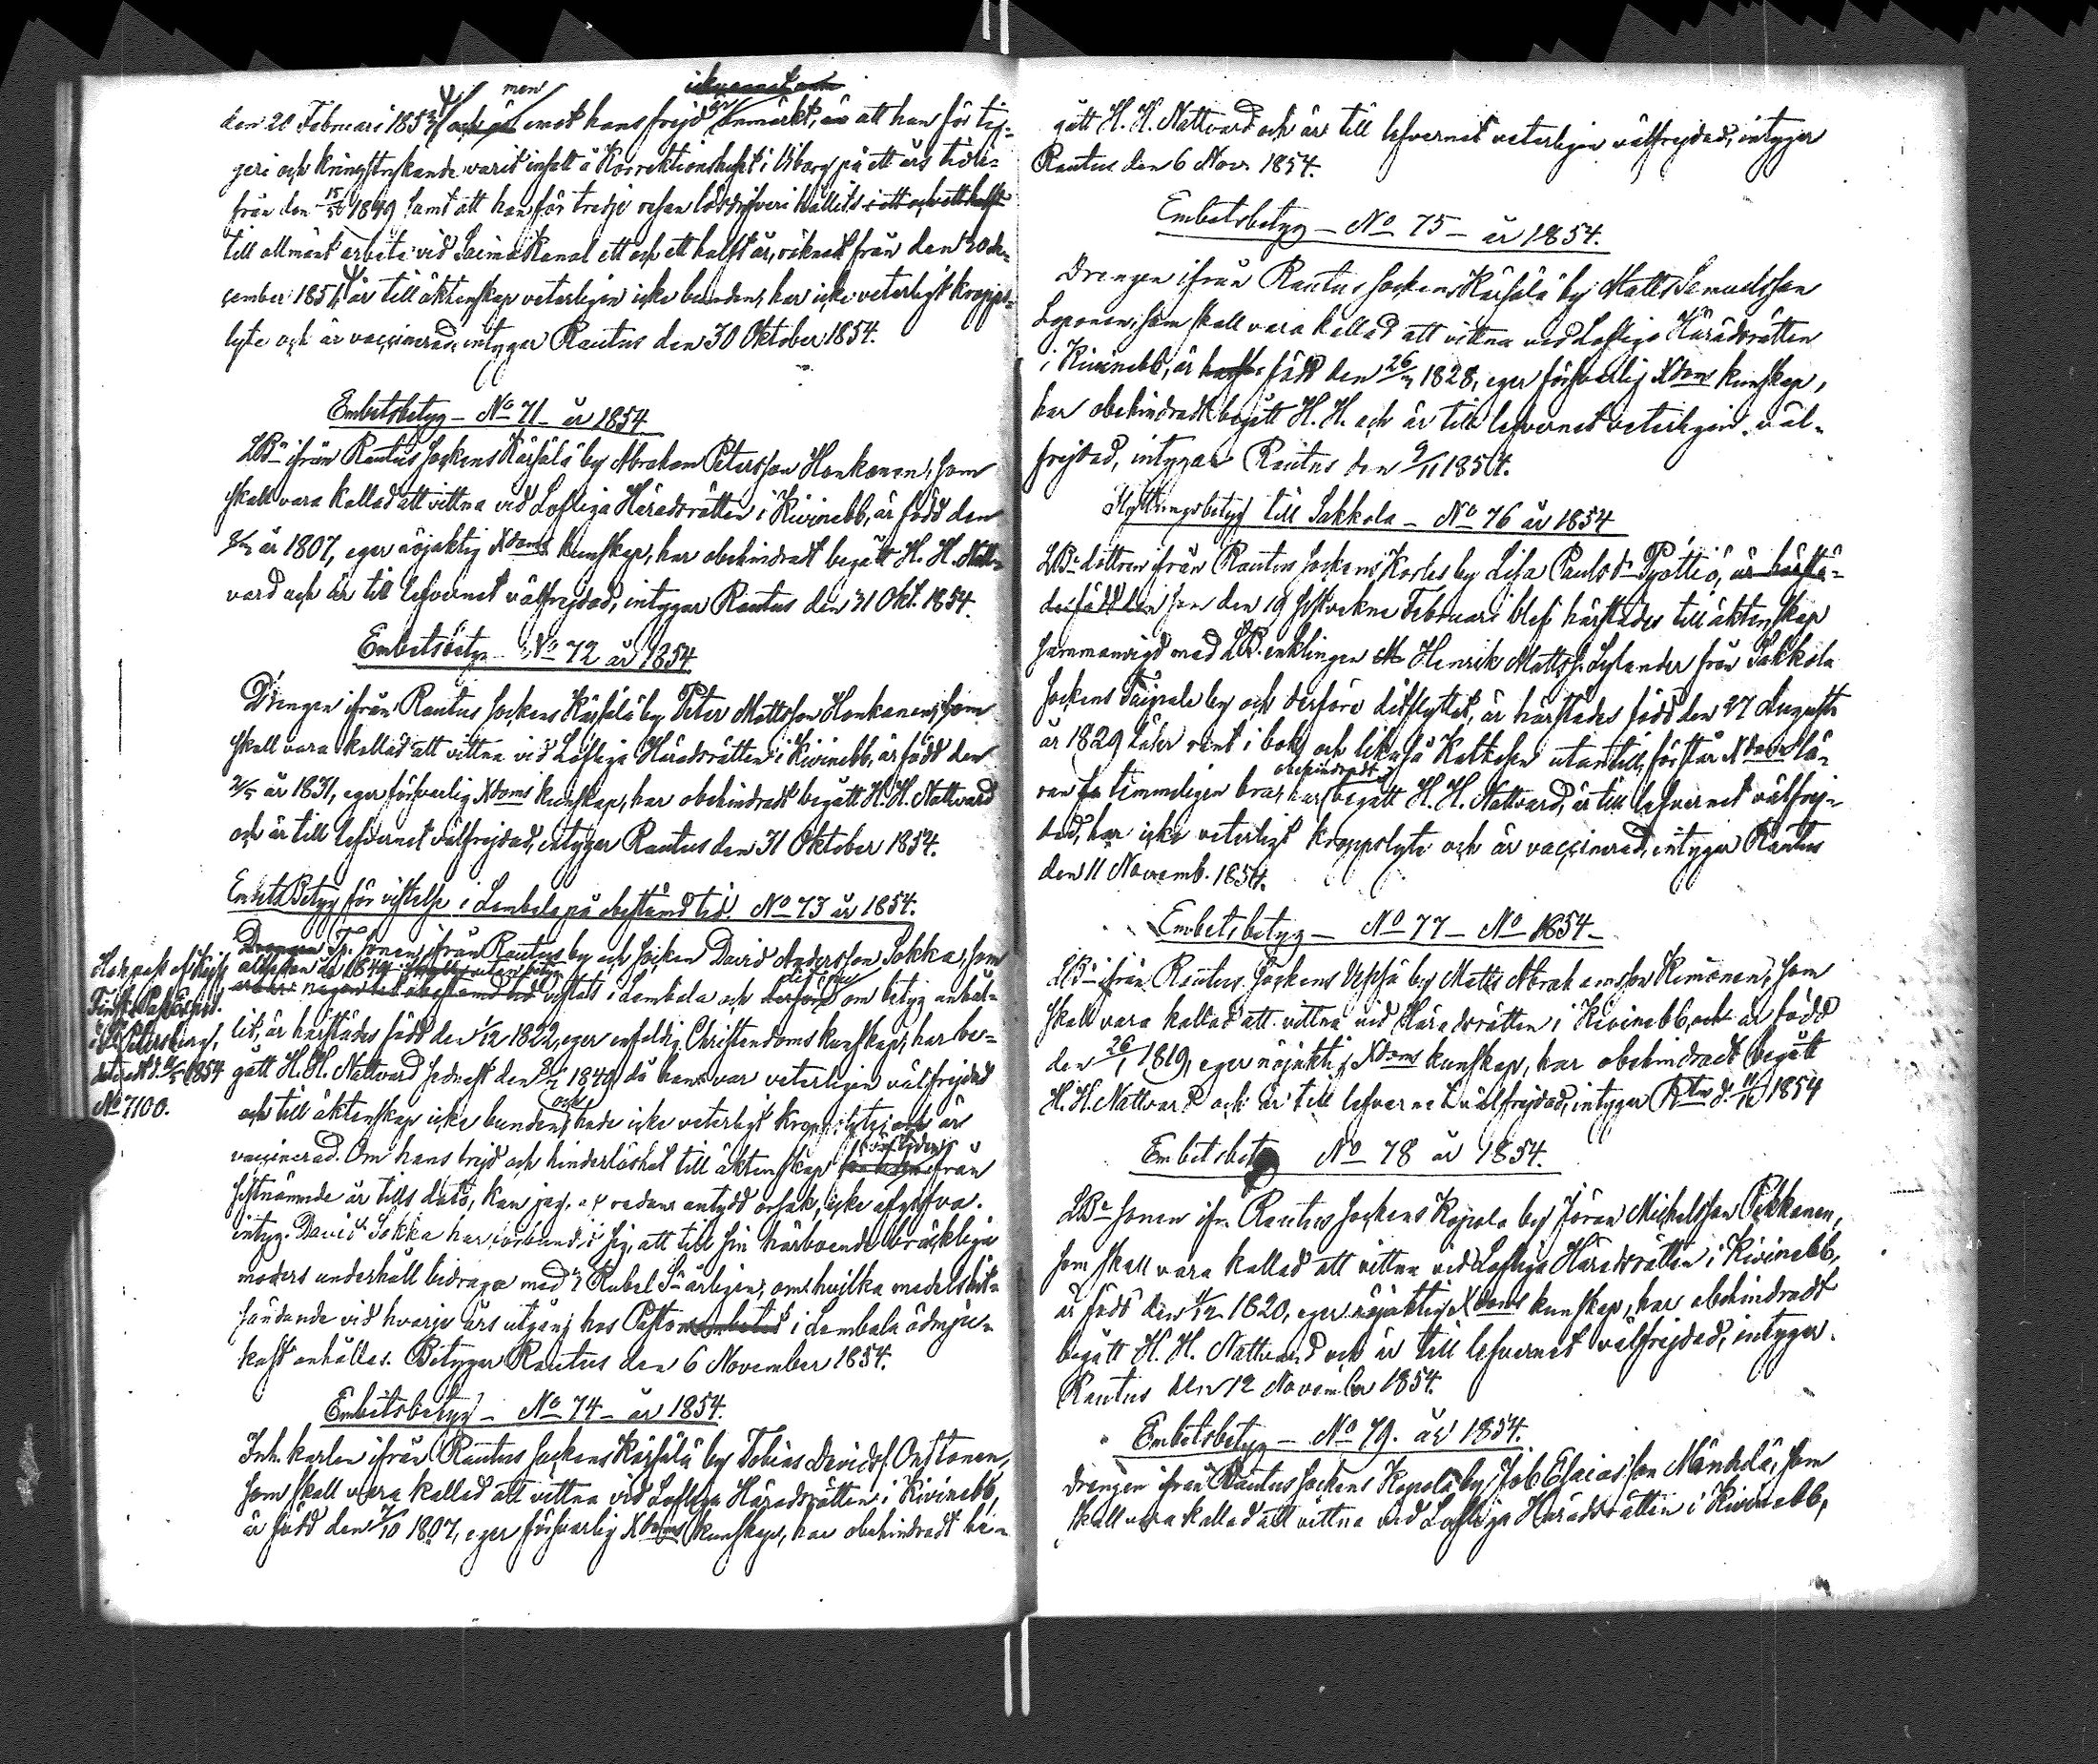 men
den 20 Februari 1853 emot hans frejd är anmärkt, att han för tig-
geri och kringstrykande warit insatt å Korrektionshuset i Viborg på ett års tid
från den 1849 samt att han för tredje resan lösdrifveri hållits i ett och ett halft
till allmänt arbete vid Saima Kanal ett och ett halft år, räknadt från den 30 de-
cember 1851, är till äktenskap veterligen icke bunden, har icke veterligt kropps-
lyte och är vaccinerad, intygar Rautus den 30 Oktober 1854.
Embetsbetyg – No 71 – år 1854.
LBn ifrån Rautus sockens Kärsälä by Abraham Petersson Honkanen, som
skall vara kallad att vittna vid Lofliga Häradsrätten i Kivinebb, är född den
år 1807, eger nöjaktig Xdoms kunskap, har obehindradt begått H. H. Natt-
vard och är till lefvernet välfrejdad, intygar Rautus den 31 Okt. 1854.
Embetsbetyg – No 72 år 1854
Drengen ifrån Rautus sockens Kärsälä by Peter Mattsson Honkanen, som
skall vara kallad att vittna vid Lofliga Häradsrätten i Kivinebb, är född den
2/5 år 1831, eger försvarlig Xdoms kunskap, har obehindradt begått H. H. Nattvard
och är till lefvernet välfrejdad, intygar Rautus den 31 Oktober 1854.
Embets Betyg för vistelse i Lembala på obestämd tid. No 73 år 1854.
Drengen sonen ifrån Rautus by och socken David Andersson Sokka, som
alltsedan år 1844
någon tid obestämd tid vistats i Lembala och derföre om betyg anhål-
lit, är härstädes född den 1/12 1822, eger enfaldig Christendoms kunskap, har be-
gått H. H. Nattvard sednast den 1849 då han var veterligen välfrejdad
och
och till äktenskap icke bunden, hade icke veterligt kroppslyte och är
vaccinerad. Om hans frejd och hinderlöshet till äktenskap från
sistnämnde år tills dato, kan jag, af redan antydd orsak, icke afgifva
intyg. David Sokka har förbundit sig, att till sin härboende bräckliga
moders underhåll bidraga med Rubel Sr årligen, om hvilka medels hit-
sändande vid hvarje års utgång hos Pastorsembetet i Lembala ödmju-
kast anhålles. Betygar Rautus den 6 November 1854.
Har pass af
Finska Passexped.
i St Petersburg,
dateradt d. 1854
No 7100.
Embetsbetyg – No 74 – år 1854.
Inh. karlen ifrån Rautus sockens Kärsälä by Tobias Davidsf.
som skall vara kallad att vittna vid Lofliga Häradsrätten i Kivinebb,
är född den 1807, eger försvarlig Xdoms kunskap, har obehindradt be-
gått H. H. Nattvard och är till lefvernet veterligen välfrejdad, intygar
Rautus den 6 Nov. 1854.
Embetsbetyg – No 75 – år 1854.
Drengen ifrån Rautus sockens Kärsälä by Matts Samuelsson
Loponen, som skall vara kallad att vittna vid Lofliga Häradsrätten
i Kivinebb, är född den 1828, eger försvarlig Xdoms kunskap,
har obehindradt begått H. H. och är till lefvernet veterligen väl-
frejdad, intygar Rautus den 9/11 1854.
Flyttningsbetyg till Sakkola – No 76 år 1854
LBs dottren ifrån Rautus sockens Korles by Lisa Paulsdr Pyöttiö, är härstä-
des född den som den 19 sistvekne Februari blef härstädes till äktenskap
sammanvigd med LB. enklingen Henrik Mattsf. Sylander från Sakkola
sockens Taipale by och derföre ditflyttat, är härstädes född den 27 Augusti
år 1829 läser rent i bok och likaså Katkesen utantill, förstår Xdoms lä-
obehindradt
ran temmeligen bra, har begått H. H. Nattvard, är till lefvernet välfrej-
dad, har icke veterligt kroppslyte och är vaccinerad, intygar Rautus
den 11 Novemb. 1854.
Embetsbetyg – No 77 – No 1854 –
LBn ifrån Rautus sockens by Matts Abrahamsson Kemonen, som
skall vara kallad att vittna vid Häradsrätten i Kivinebb, och är född
den 26/1 1819, eger nöjaktig Xdoms kunskap, har obehindradt begått
H. H. Nattvard och är till lefvernet välfrejdad, intygar Rtus d. 11/11 1854
Embetsbetyg No 78 år 1854.
LBs sonen ifr. Rautus sockens Kopola by Jöran Michelsson Pekkanen,
som skall vara kallad att vittna vid Lofliga Häradsrätten i Kivinebb,
är född den 1820, eger nöjaktig Xdoms kunskap, har obehindradt
begått H. H. Nattvard och är till lefvernet välfrejdad, intygar
Rautus den 12 November 1854.
Embetsbetyg – No 79. år 1854.
Drengen ifrån Rautus sockens Kopola by Job Esaiasson Mändelä, som
skall vara kallad att vittna vid Lofliga Häradsrätten i Kivinebb,